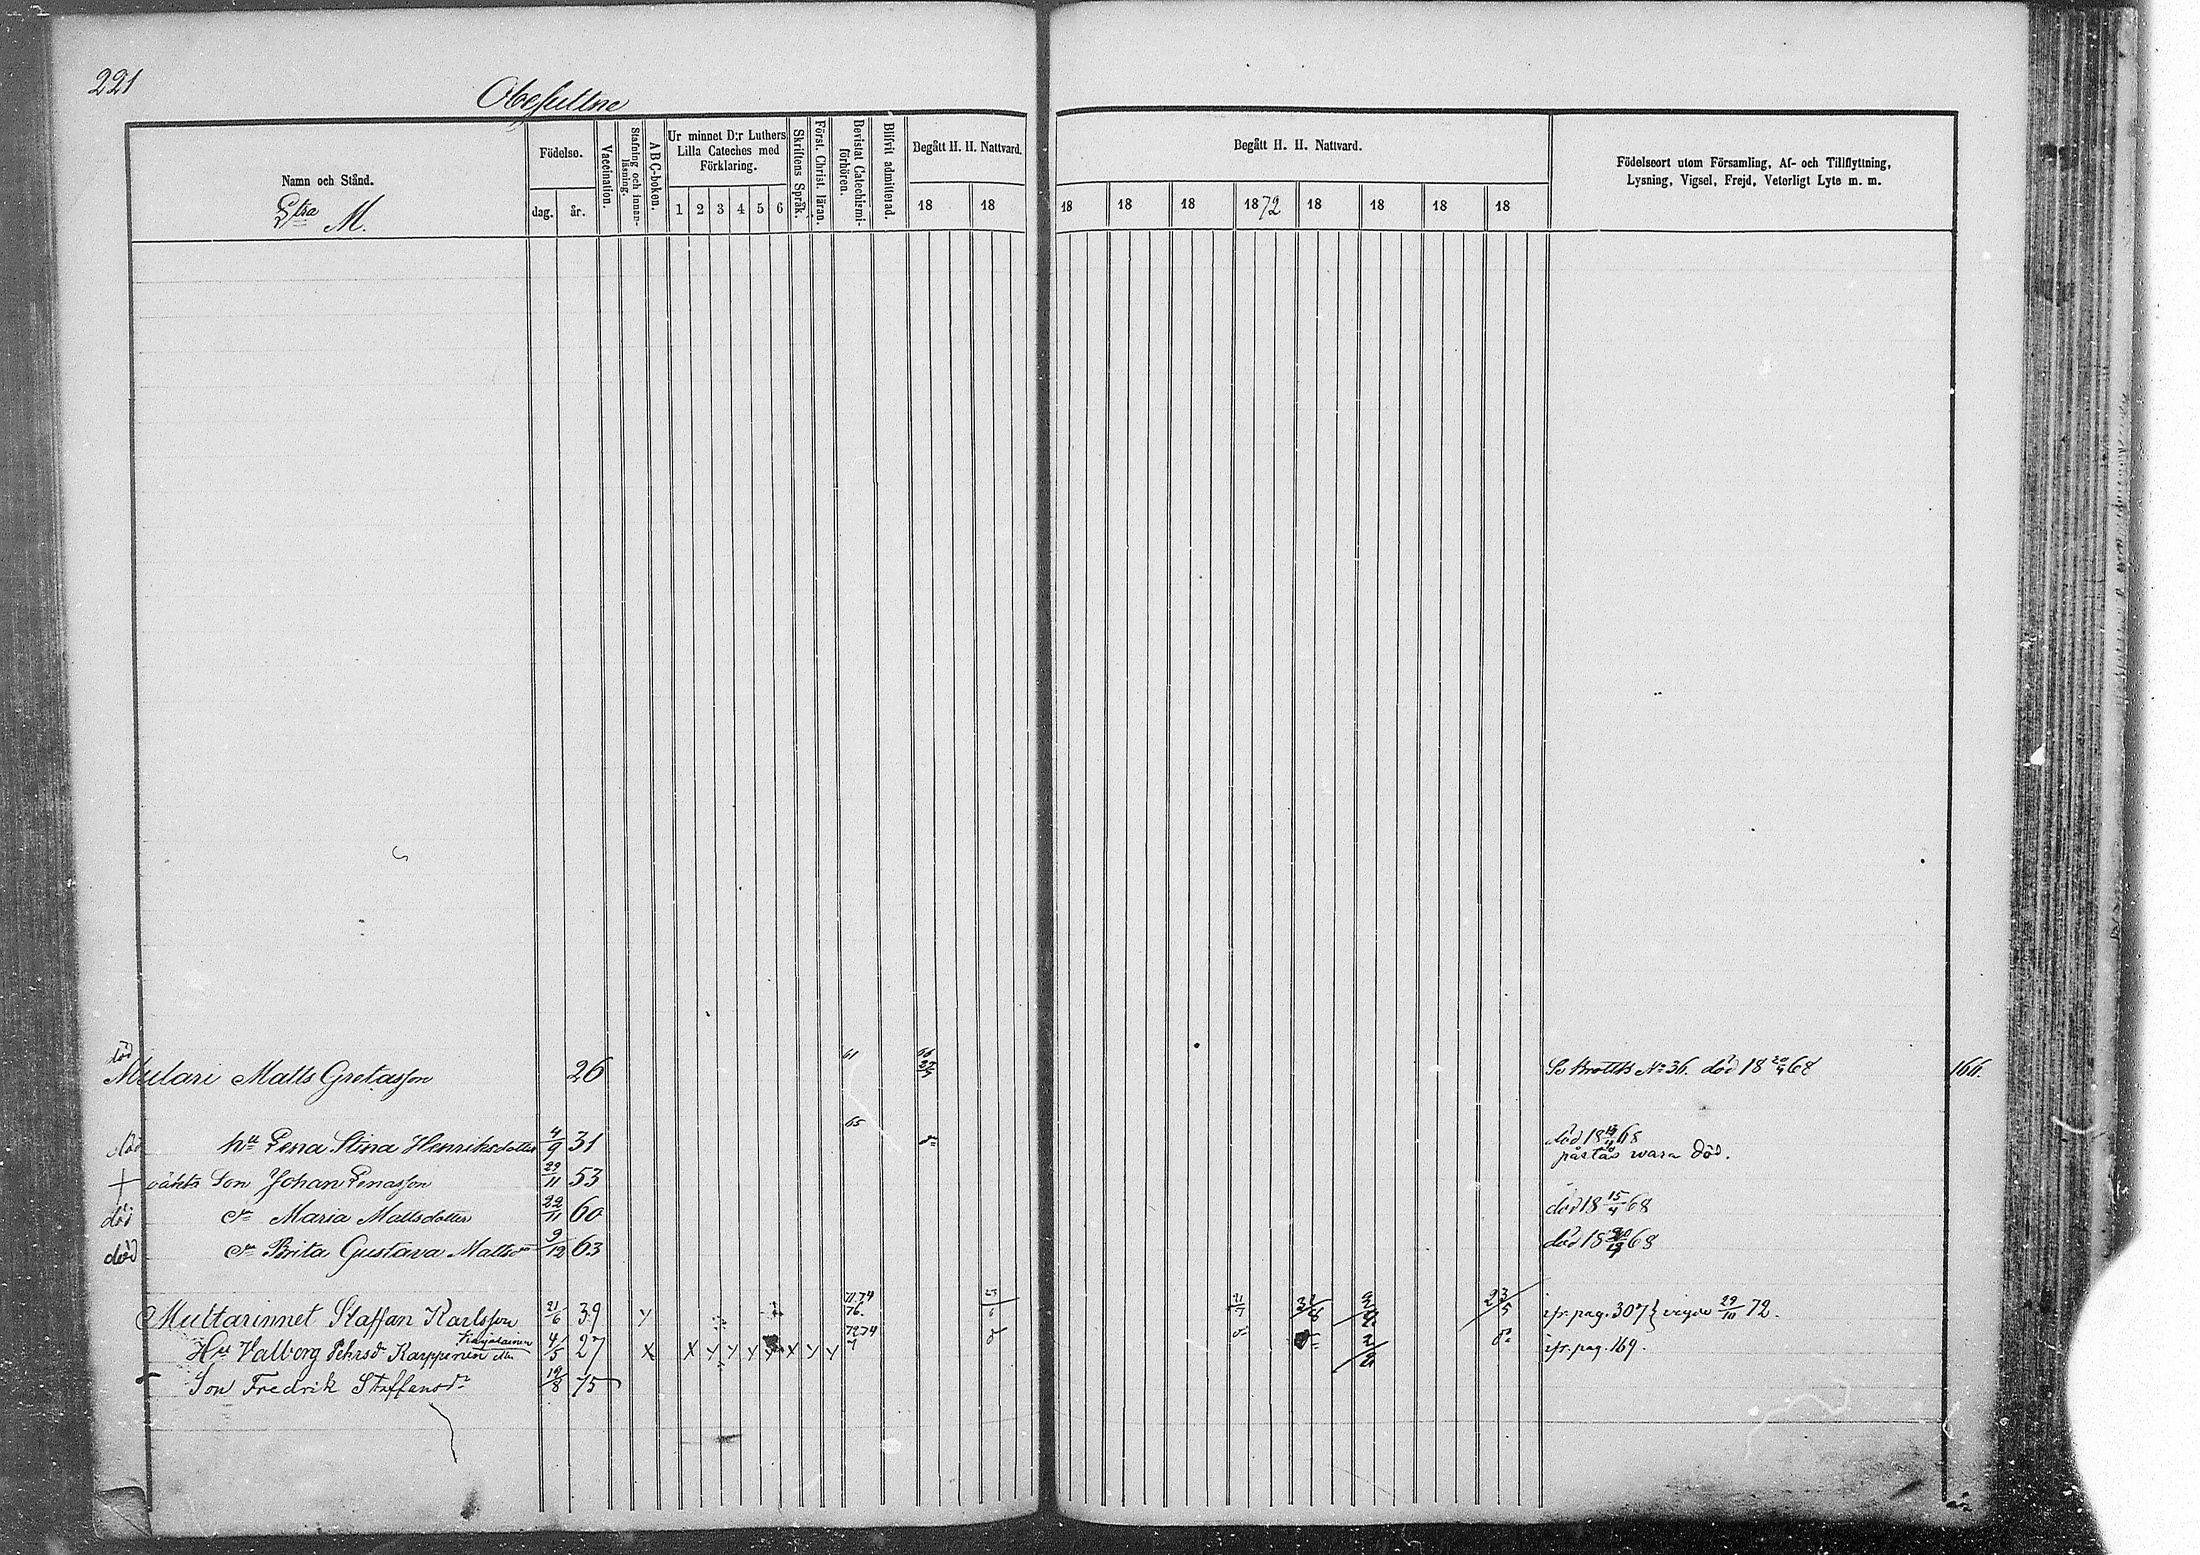 221
Obesuttne
Namn och Stånd.
Litra M.
Födelse.
dag. år.
Vaccination.
Stafning och innanläsning.
ABC-boken.
Ur minnet D:r Luthers Lilla Cateches med Förklaring.
1 2 3 4 5 6
Skriftens Språk.
Först. Christ. läran.
Bevistat Catechismiförhören.
Blifvit admitterad.
Begått H. H. Nattvard.
18 18
Begått H. H. Nattvard.
18 18 18 1872 18 18 18 18
Födelseort utom Församling, Af- och Tillflyttning,
Lysning, Vigsel, Frejd, Veterligt Lyte m. m.
död
Mulari Matts Gretasson 26 61 66 No 36. död 18 68 166.
död hu Lena Stina Henriksdotter 4/9 31 65 död 18 68
påstås vara död.
+ oäkta Son Johan Lenasson 29/11 53
död Maria Mattsdotter 22/11 60 död 18 15/4 68
död Brita Gustava Mattsdr 9/12 63 död 18 68
Multarinnet Staffan Karlsson 21/6 39 71.74 76. 23/5 ifr. pag. 307 } vigde 29/10 72.
Karjalainen
Hu Valborg Pehrsd Karppinen 4/5 27 72 74 ifr. pag. 169.
Son Fredrik Staffans 19/8 75